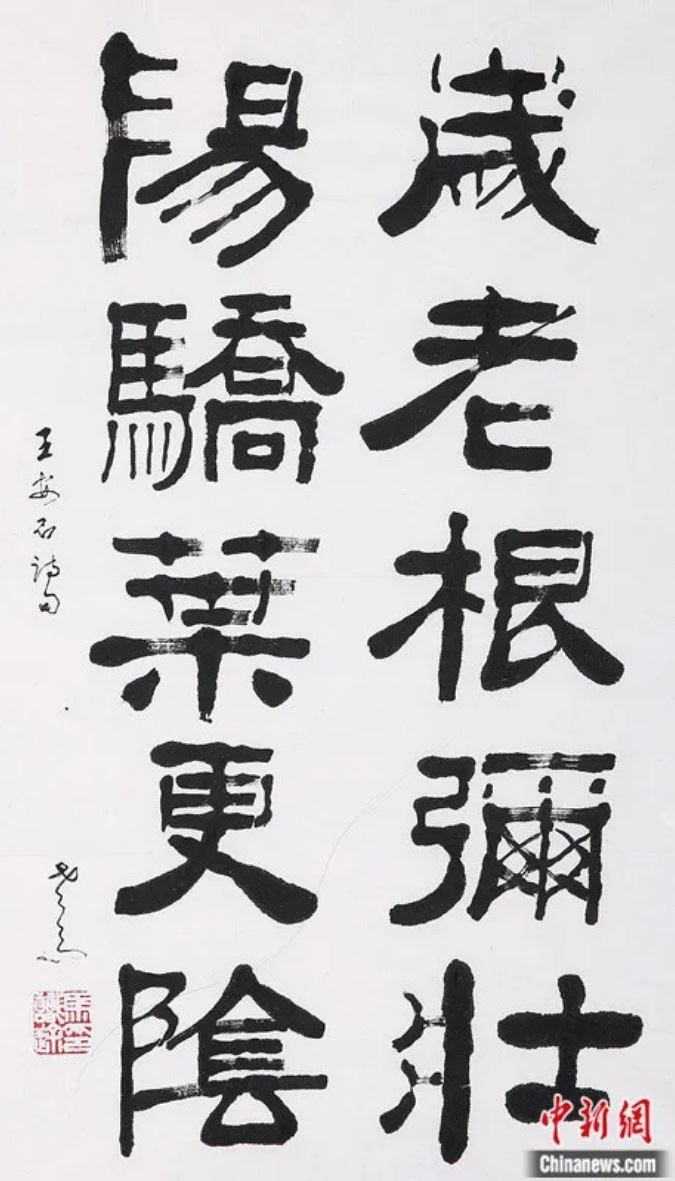 歲老根彌壯
陽驕葉更陰
王安石詩句
中新網
Chinanews.com